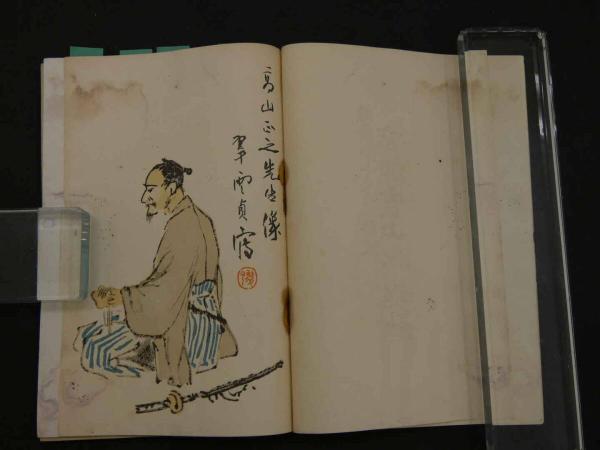 高山正之先生像
雲貞寫